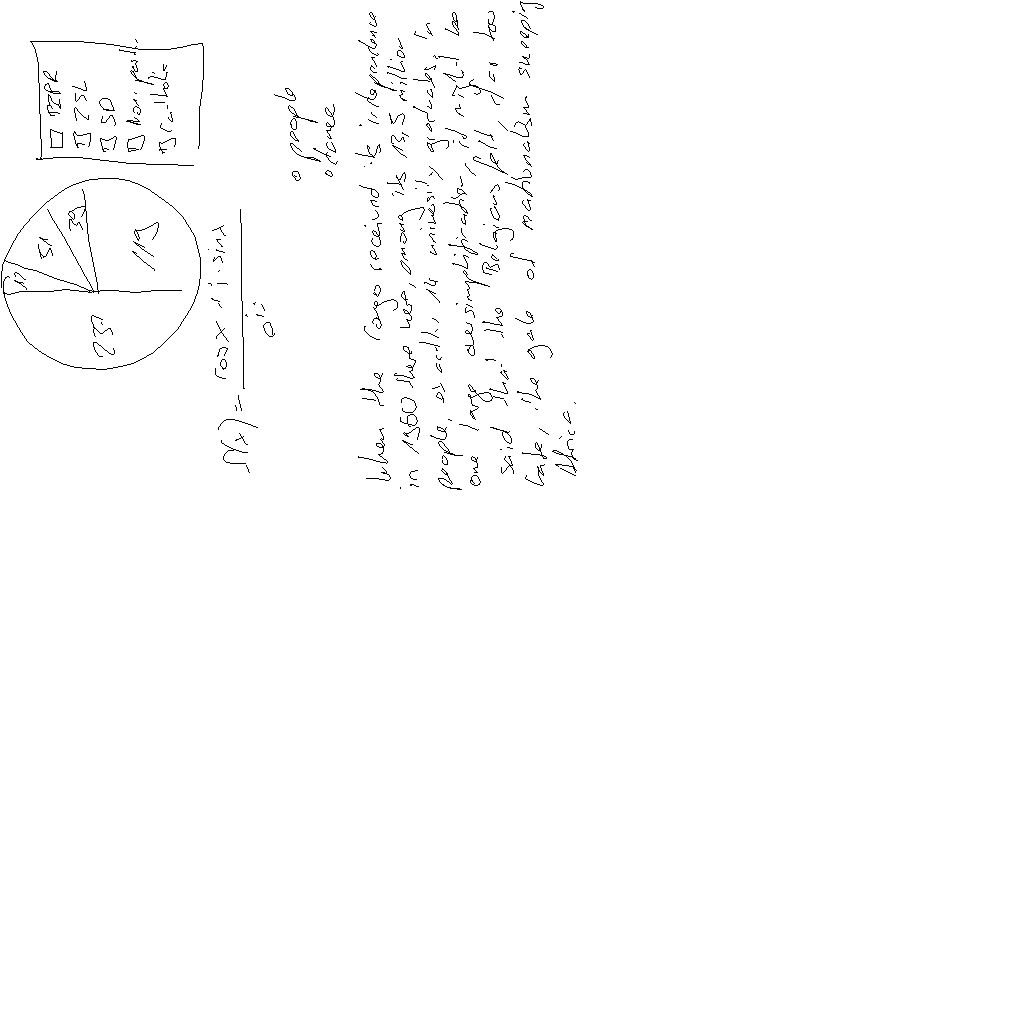 PZPR
ZSL
SD
Non-parti.
Catholic
17
51
39
119
252
f(x) = cosx + i·sinx
people
dance
When the Congo received its independence
in 1960 there here, among its 13,5 million
people, exactly 14 university graduates. In
one large oversimplification, it might be
said that the Belgians fell, far too
late, the gale of nationalism sweeping
Africa.